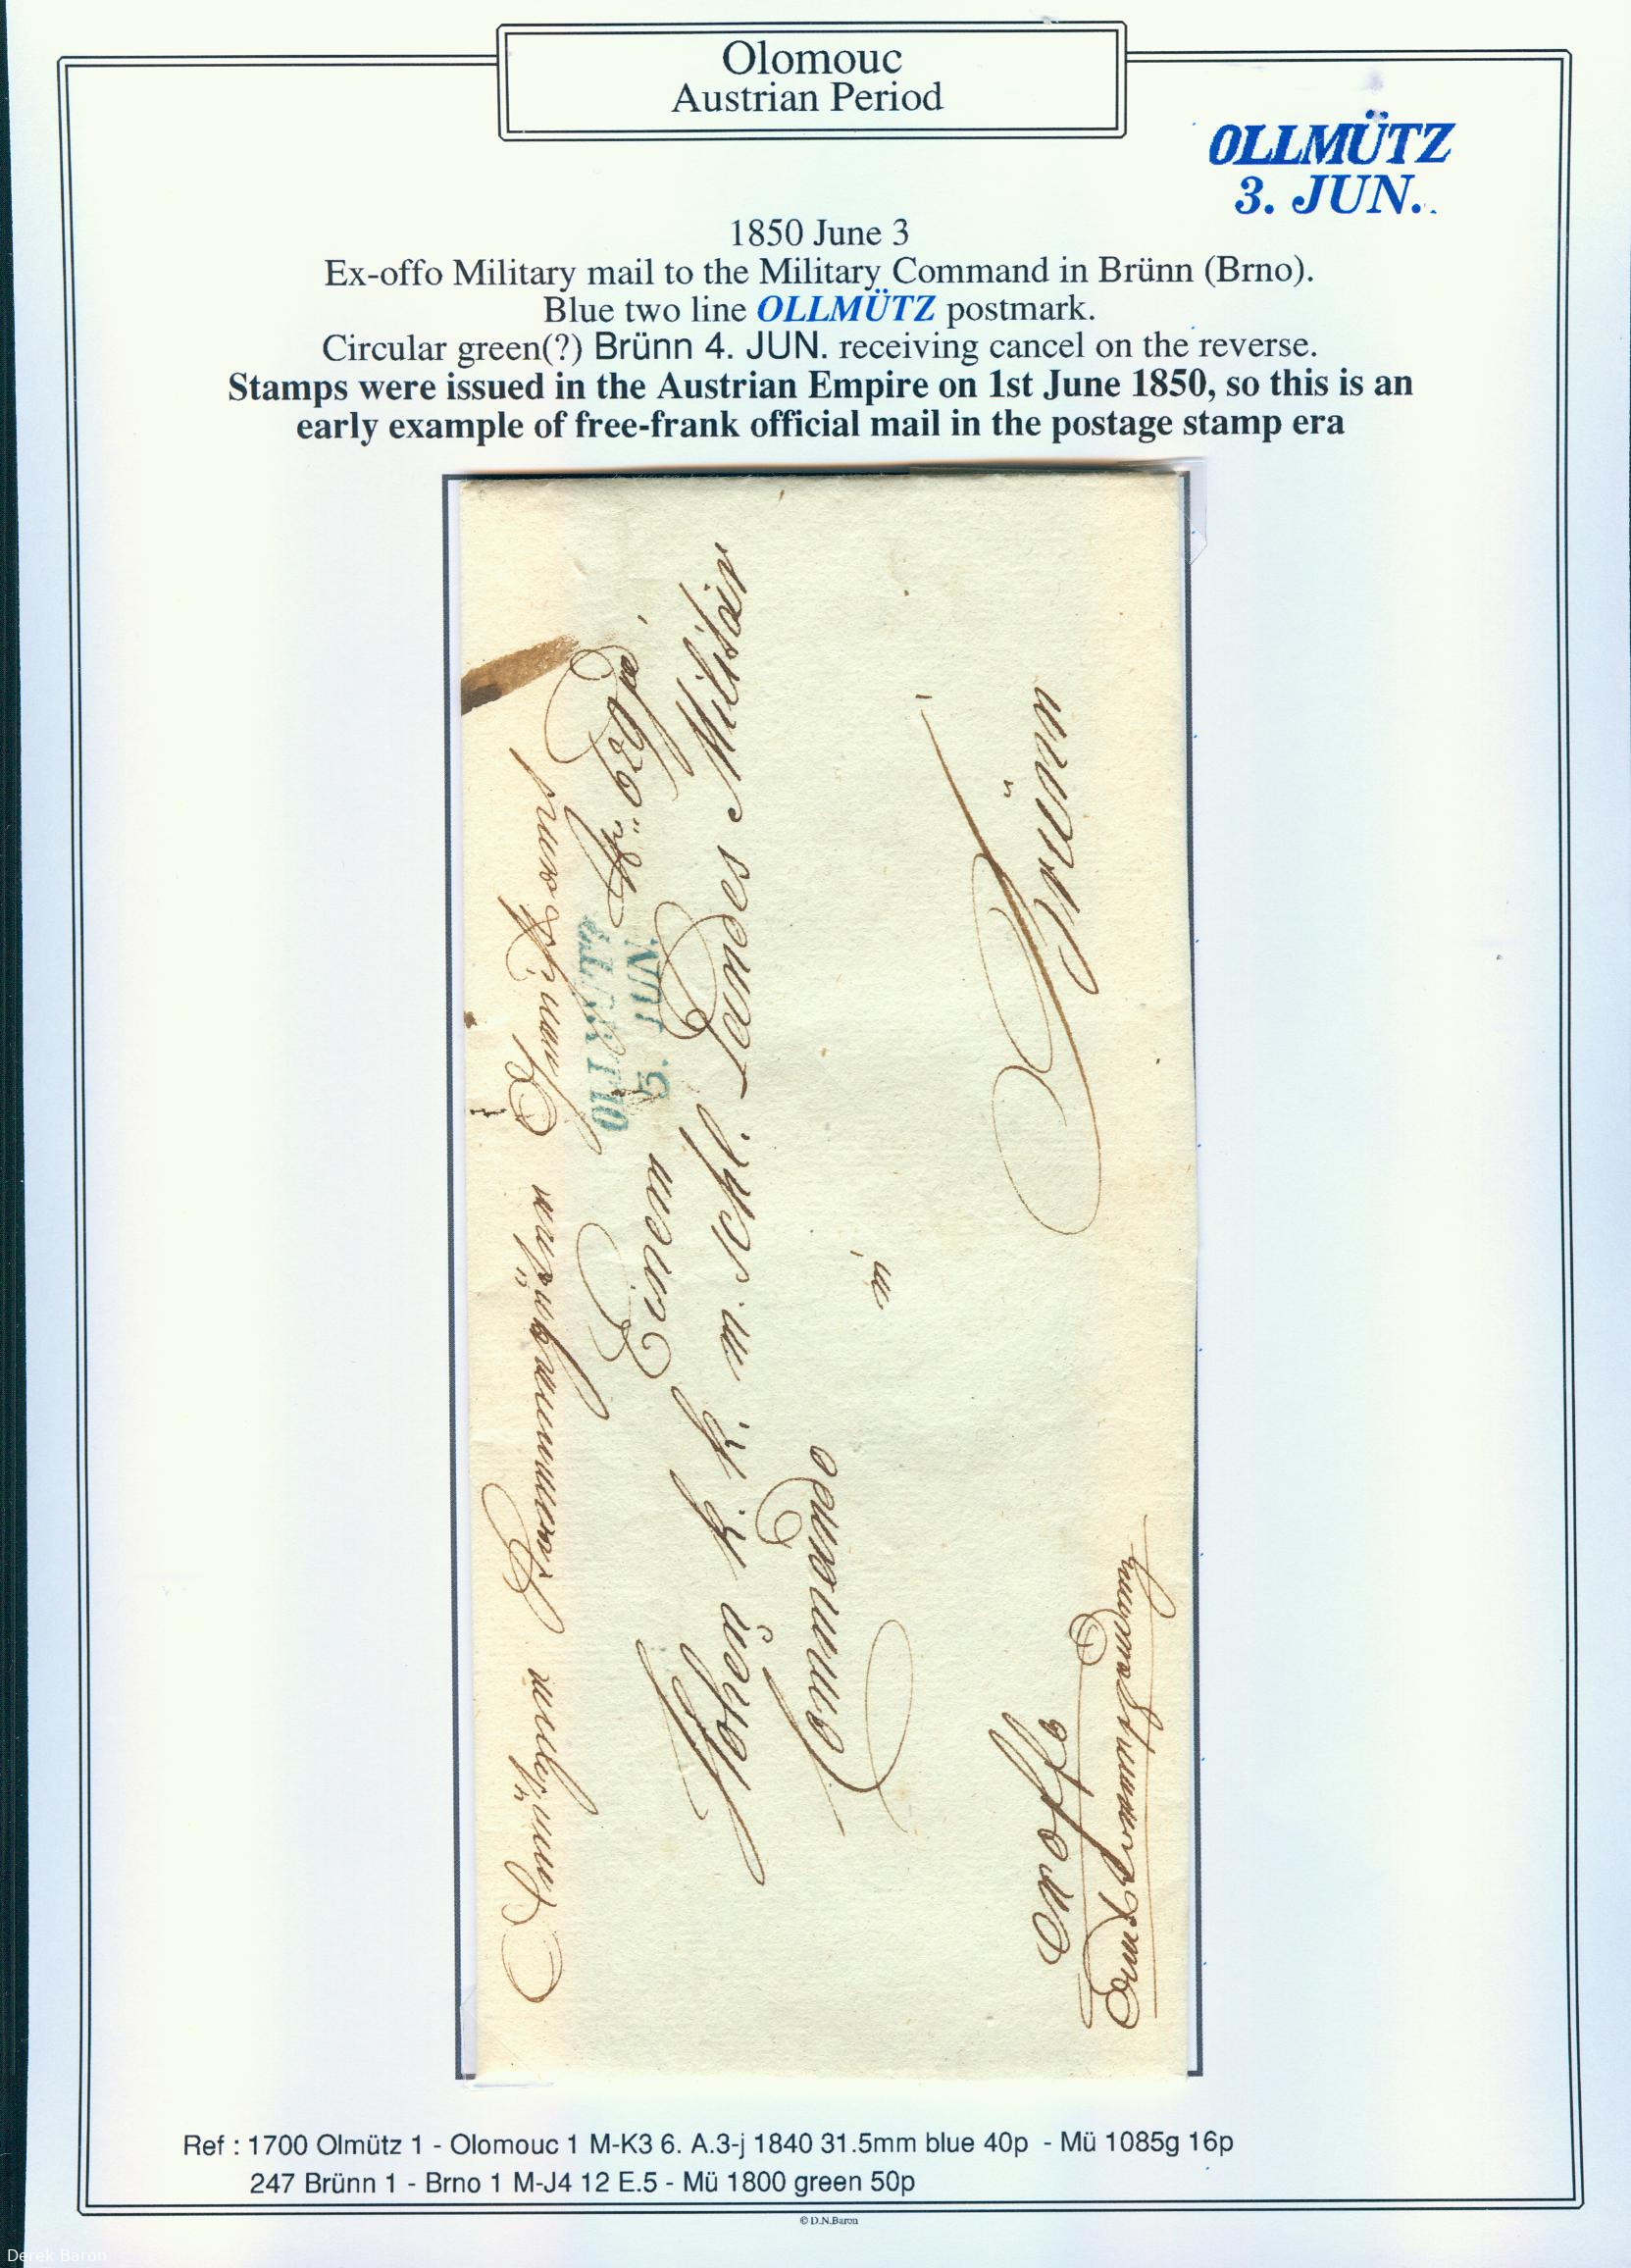 Olomouc
Austrian Period
OLLMÜTZ
3. JUN.
1850 June 3
Ex-offo Military mail to the Military Command in Brünn (Brno).
Blue two line OLLMÜTZ postmark.
Circular green(?) Brünn 4. JUN. receiving cancel on the reverse.
Stamps were issued in the Austrian Empire on 1st June 1850, so this is an
early example of free-frank official mail in the postage stamp era
OLLMÜTZ
3. JUN.
Einem
k. k. m. schl. Landes Militair
Commando
in
Brünn
Ex offo
Ref : 1700 Olmütz 1 - Olomouc 1 M-K3 6. A.3-j 1840 31.5mm blue 40p - Mü 1085g 16p
247 Brünn 1 - Brno 1 M-J4 12 E.5 - Mü 1800 green 50p
© D.N.Baron
Derek Baron